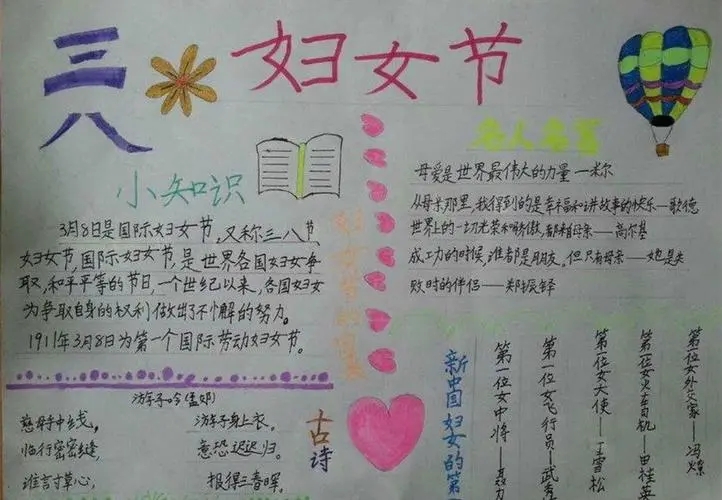 三八
妇女节
小知识
3月8日是国际妇女节,又称三八节,
妇女节,国际妇女节,是世界各国妇女争
取,和平平等的节日,一个世纪以来,各国妇女
为争取自身的权利做出了不懈的努力。
1911年3月8日为第一个国际劳动妇女节。
名人名言
母爱是世界最伟大的力量—米尔
从母亲那里,我得到的是幸福和讲故事的快乐—歌德
世界上的一切光荣和骄傲,都来自母亲——高尔基
成工力的时候,谁都是朋友。但只有母亲——她是失
败时的伴侣——郑振铎
游子吟(孟郊)
慈母手中线,
游子身上衣。
临行密密缝,
意恐迟迟归。
谁言寸草心,
报得三春晖。
古诗
新中国妇女的第一
第一位女中将——聂力
第一位女飞行员—武秀
第一位女大使——丁雪松
第一位女火车司机——田桂英
第一位女外交家——冯嫽